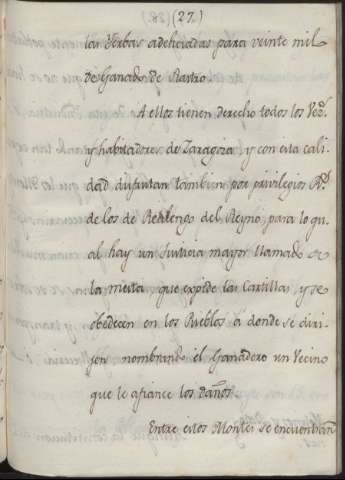 (27.)
las Yerbas adehesadas para veinte mil
de Ganado de Rastro.
A ellos tienen derecho todos los Vez.s
y habitadores de Zaragoza y con esta cali
dad disfrutan tambien por privilegios R.s
de los de Realengo del Reyno, para lo qu
al hay un Justicia mayor llamado de
la mesta, que expide las Cartillas, y se
obedecen en los Pueblos a donde se diri
jen nombrando el Ganadero un Vecino
que le afiance los daños.
Entre estos Montes se encuentran